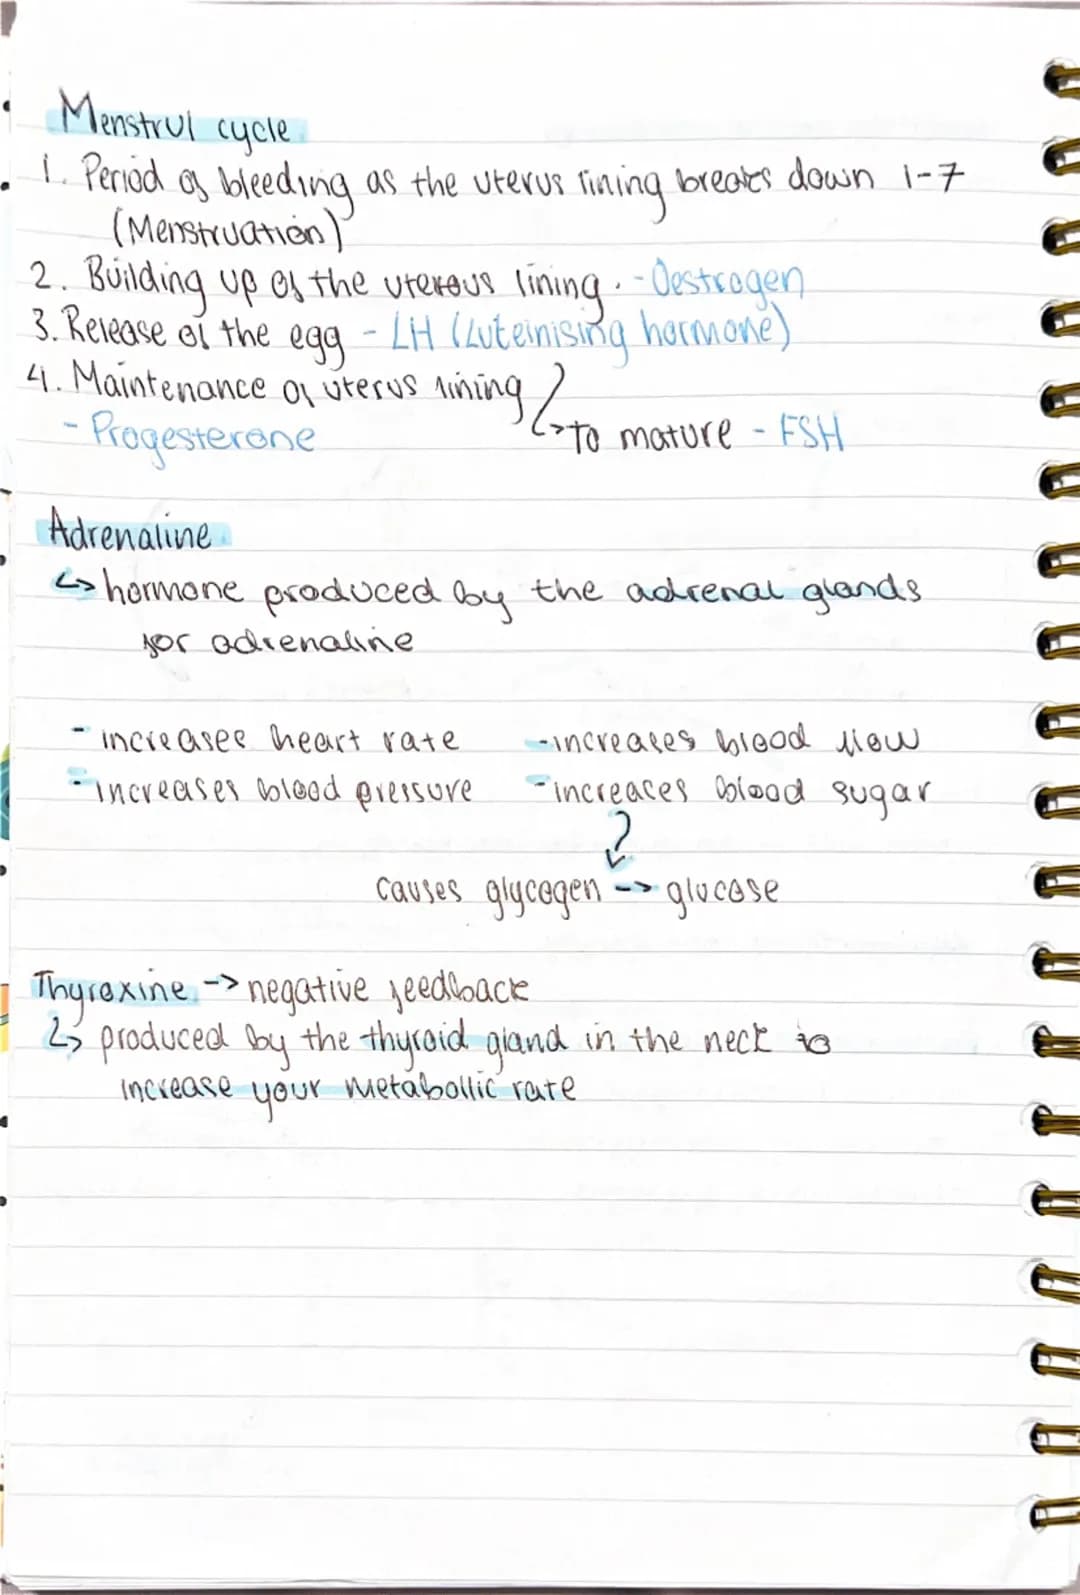 Menstrul cycle
1. Period of bleeding as the uterus lining breaks down 1-7
(Menstruation)
2. Building up of theutereus lining. - Oestrogen
3. Release of the egg - LH (Luteinising hormone)
4. Maintenance of uterus lining
- Progesterone
↳ to mature - FSH
Adrenaline
↳ hormone produced by the adrenal glands
for adrenaline
- increases heart rate - increases blood flow
- increases blood pressure - increases blood sugar
causes glycogen -> glucose
Thyroxine -> negative feedback
↳ produced by the thyroid gland in the neck to
increase your metabollic rate